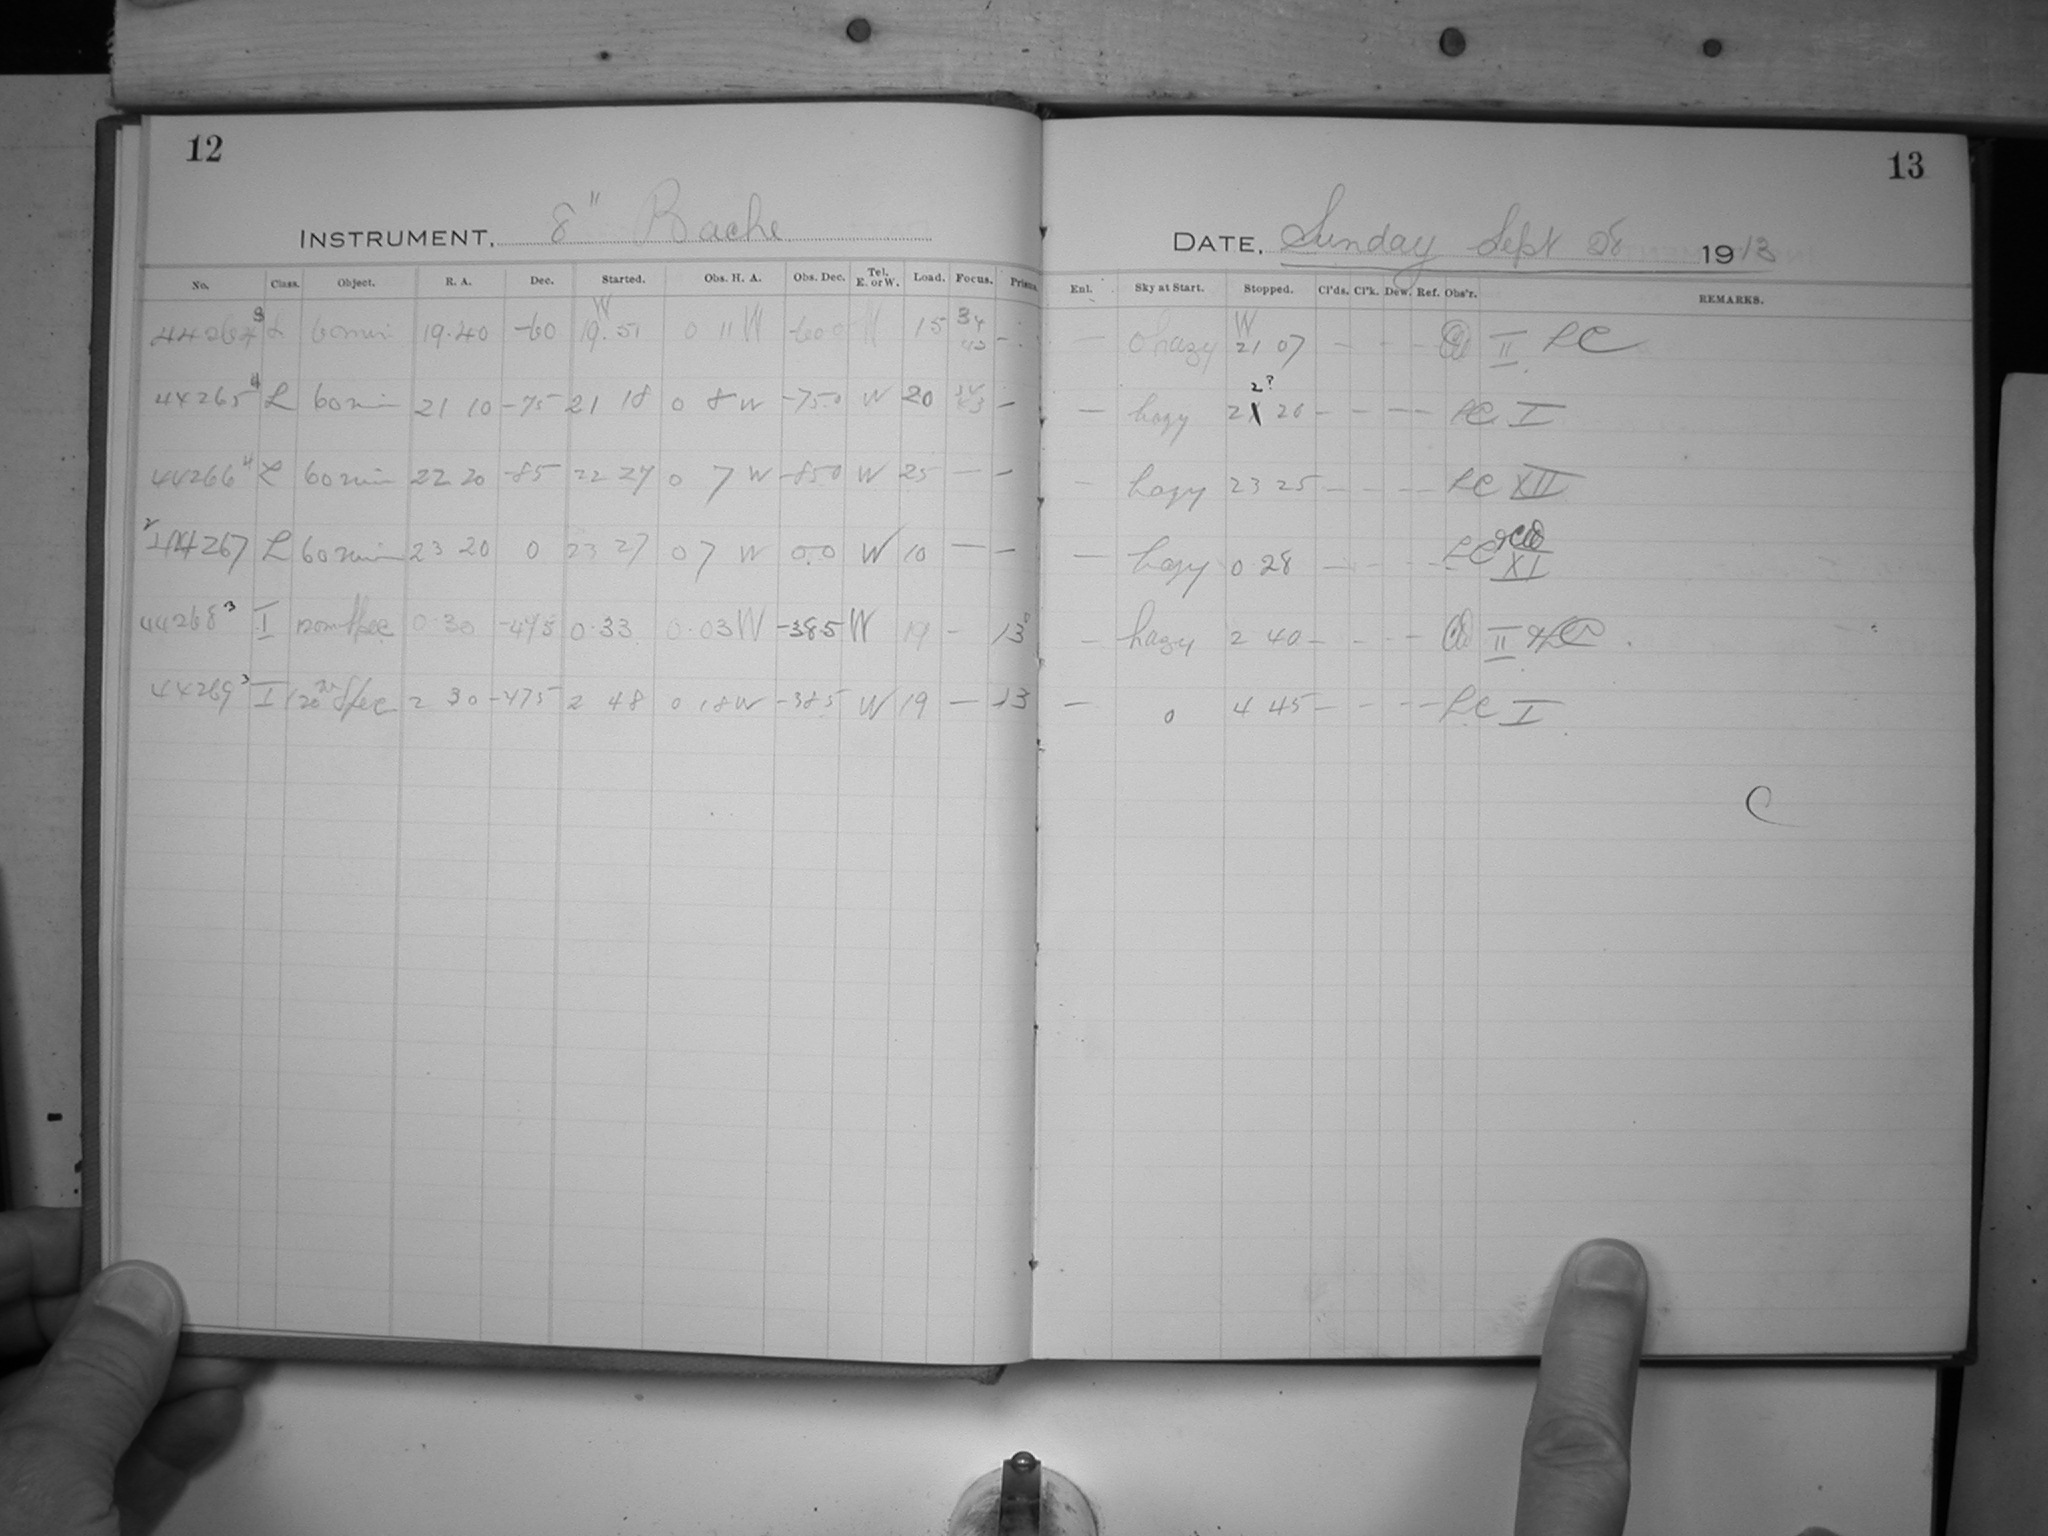 12
INSTRUMENT, 8" Bache
No. Class. Object. R. A. Dec. Started. Obs. H. A. Obs. Dec. Tel. E. or W. Load. Focus. Prism.
44264 3 L 60 min 19.40 -60 W 19.51 0 11 W -60 0 W 15 34 42 -
44265 4 L 60 min 21 10 -75 21 18 0 8 W -75.0 W 20 -
44266 4 L 60 min 22 20 -85 22 27 0 7 W -85 0 W 25 — —
44267 2 L 60 min 23 20 0 23 27 0 7 W 0.0 W 10 — —
44268 3 I 120m Spec 0.30 -475 0.33 0.03 W -38.5 W 19 - 13°
44269 3 I 120m Spec 2 30 -475 2 48 0 18 W -385 W 19 — 13
13
DATE, Sunday Sept 28 1913
Enl. Sky at Start. Stopped. Cl'ds. Cl'k. Dew. Ref. Obs'r. REMARKS.
— 0 hazy W 21 07 - - - - II LC
— hazy 2? 21 20 - - - - LC I
- hazy 23 25 - - - - LC XII
— hazy 0 28 - - - - LC XI
- hazy 2 40 - - - - II
— 0 4 45 - - - - LC I
C